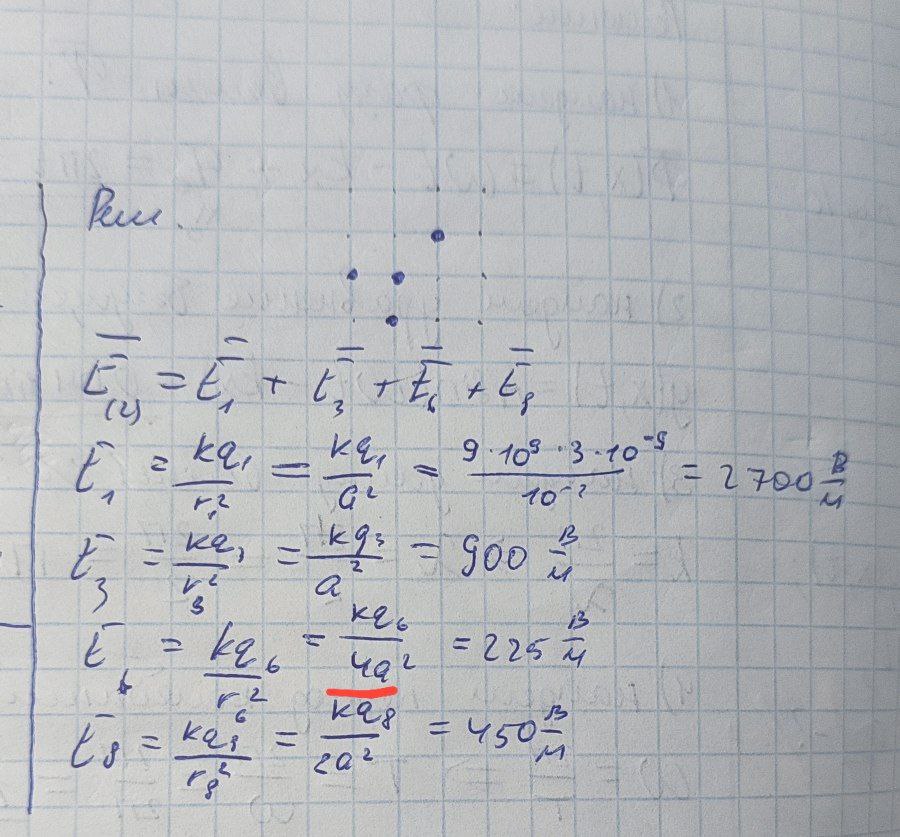 Реш.
E̅₍₂₎ = E̅₁ + E̅₃ + E̅₆ + E̅₈
E₁ = kq₁/r₁² = kq₁/a² = 9·10⁹·3·10⁻⁹/10⁻² = 2700 В/м
E₃ = kq₃/r₃² = kq₃/a² = 900 В/м
E₆ = kq₆/r₆² = kq₆/4a² = 225 В/м
E₈ = kq₈/r₈² = kq₈/2a² = 450 В/м